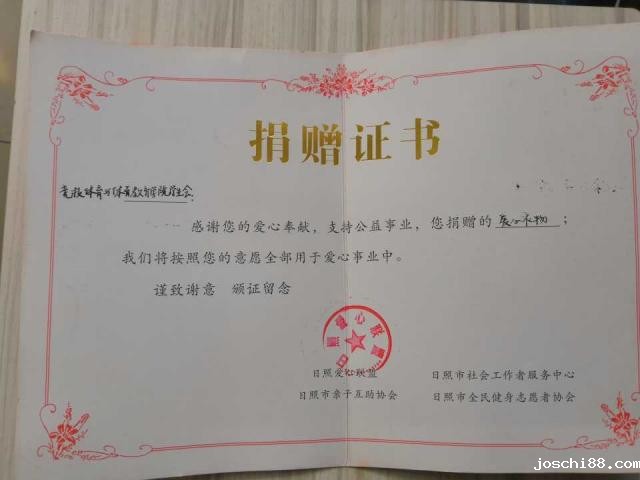 捐赠证书
竞技体育与体育教育学院学生会:
感谢您的爱心奉献，支持公益事业，您捐赠的 爱心衣物 ；
我们将按照您的意愿全部用于爱心事业中。
谨致谢意 颁证留念
日照爱心联盟
日照爱心联盟 日照市社会工作者服务中心
日照市亲子互助协会 日照市全民健身志愿者协会
joschi88.com